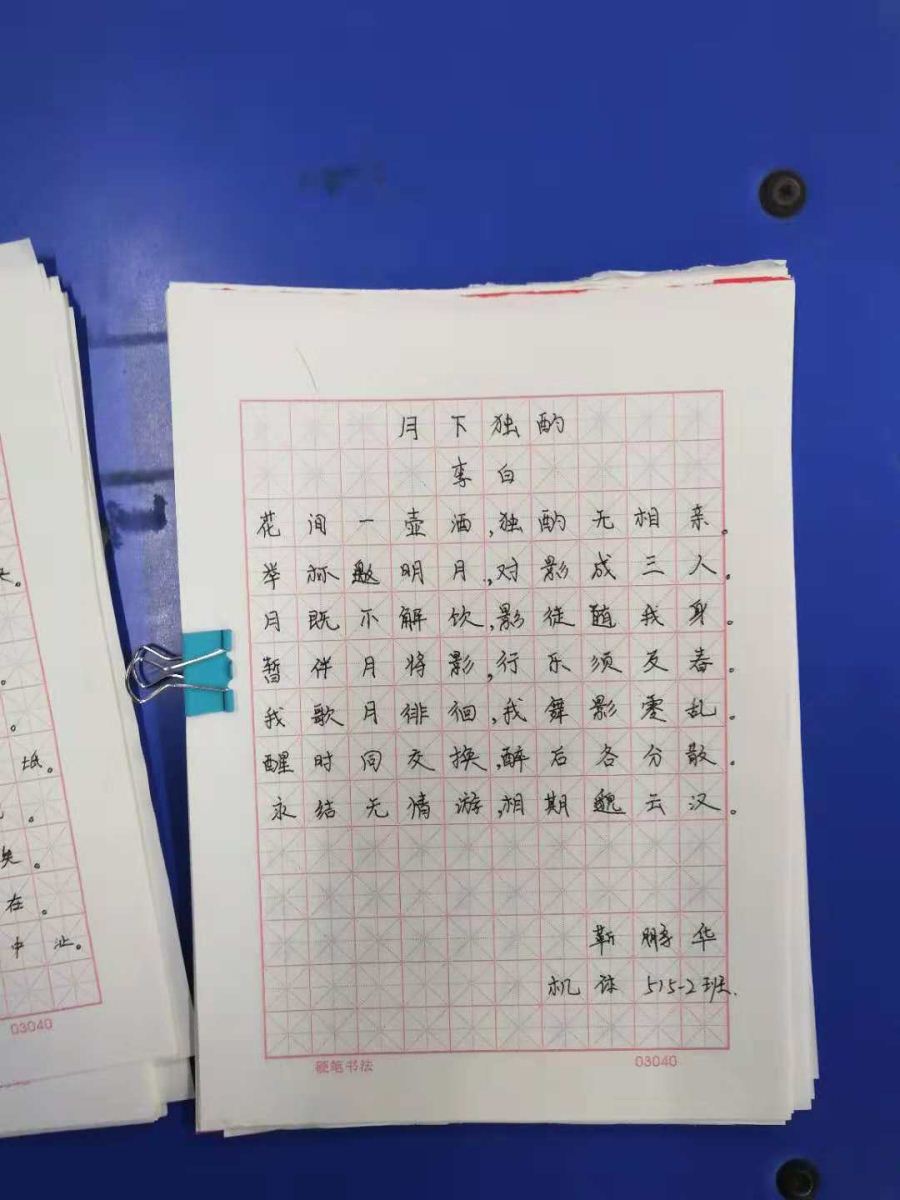 月下独酌
李白
花间一壶酒,独酌无相亲。
举杯邀明月,对影成三人。
月既不解饮,影徒随我身。
暂伴月将影,行乐须及春。
我歌月徘徊,我舞影零乱。
醒时同交换,醉后各分散。
永结无情游,相期邈云汉。
靳鹏华
机 515-2班.
硬笔书法 03040
。
。
坻。
。
矣。
在。
中沚。
03040